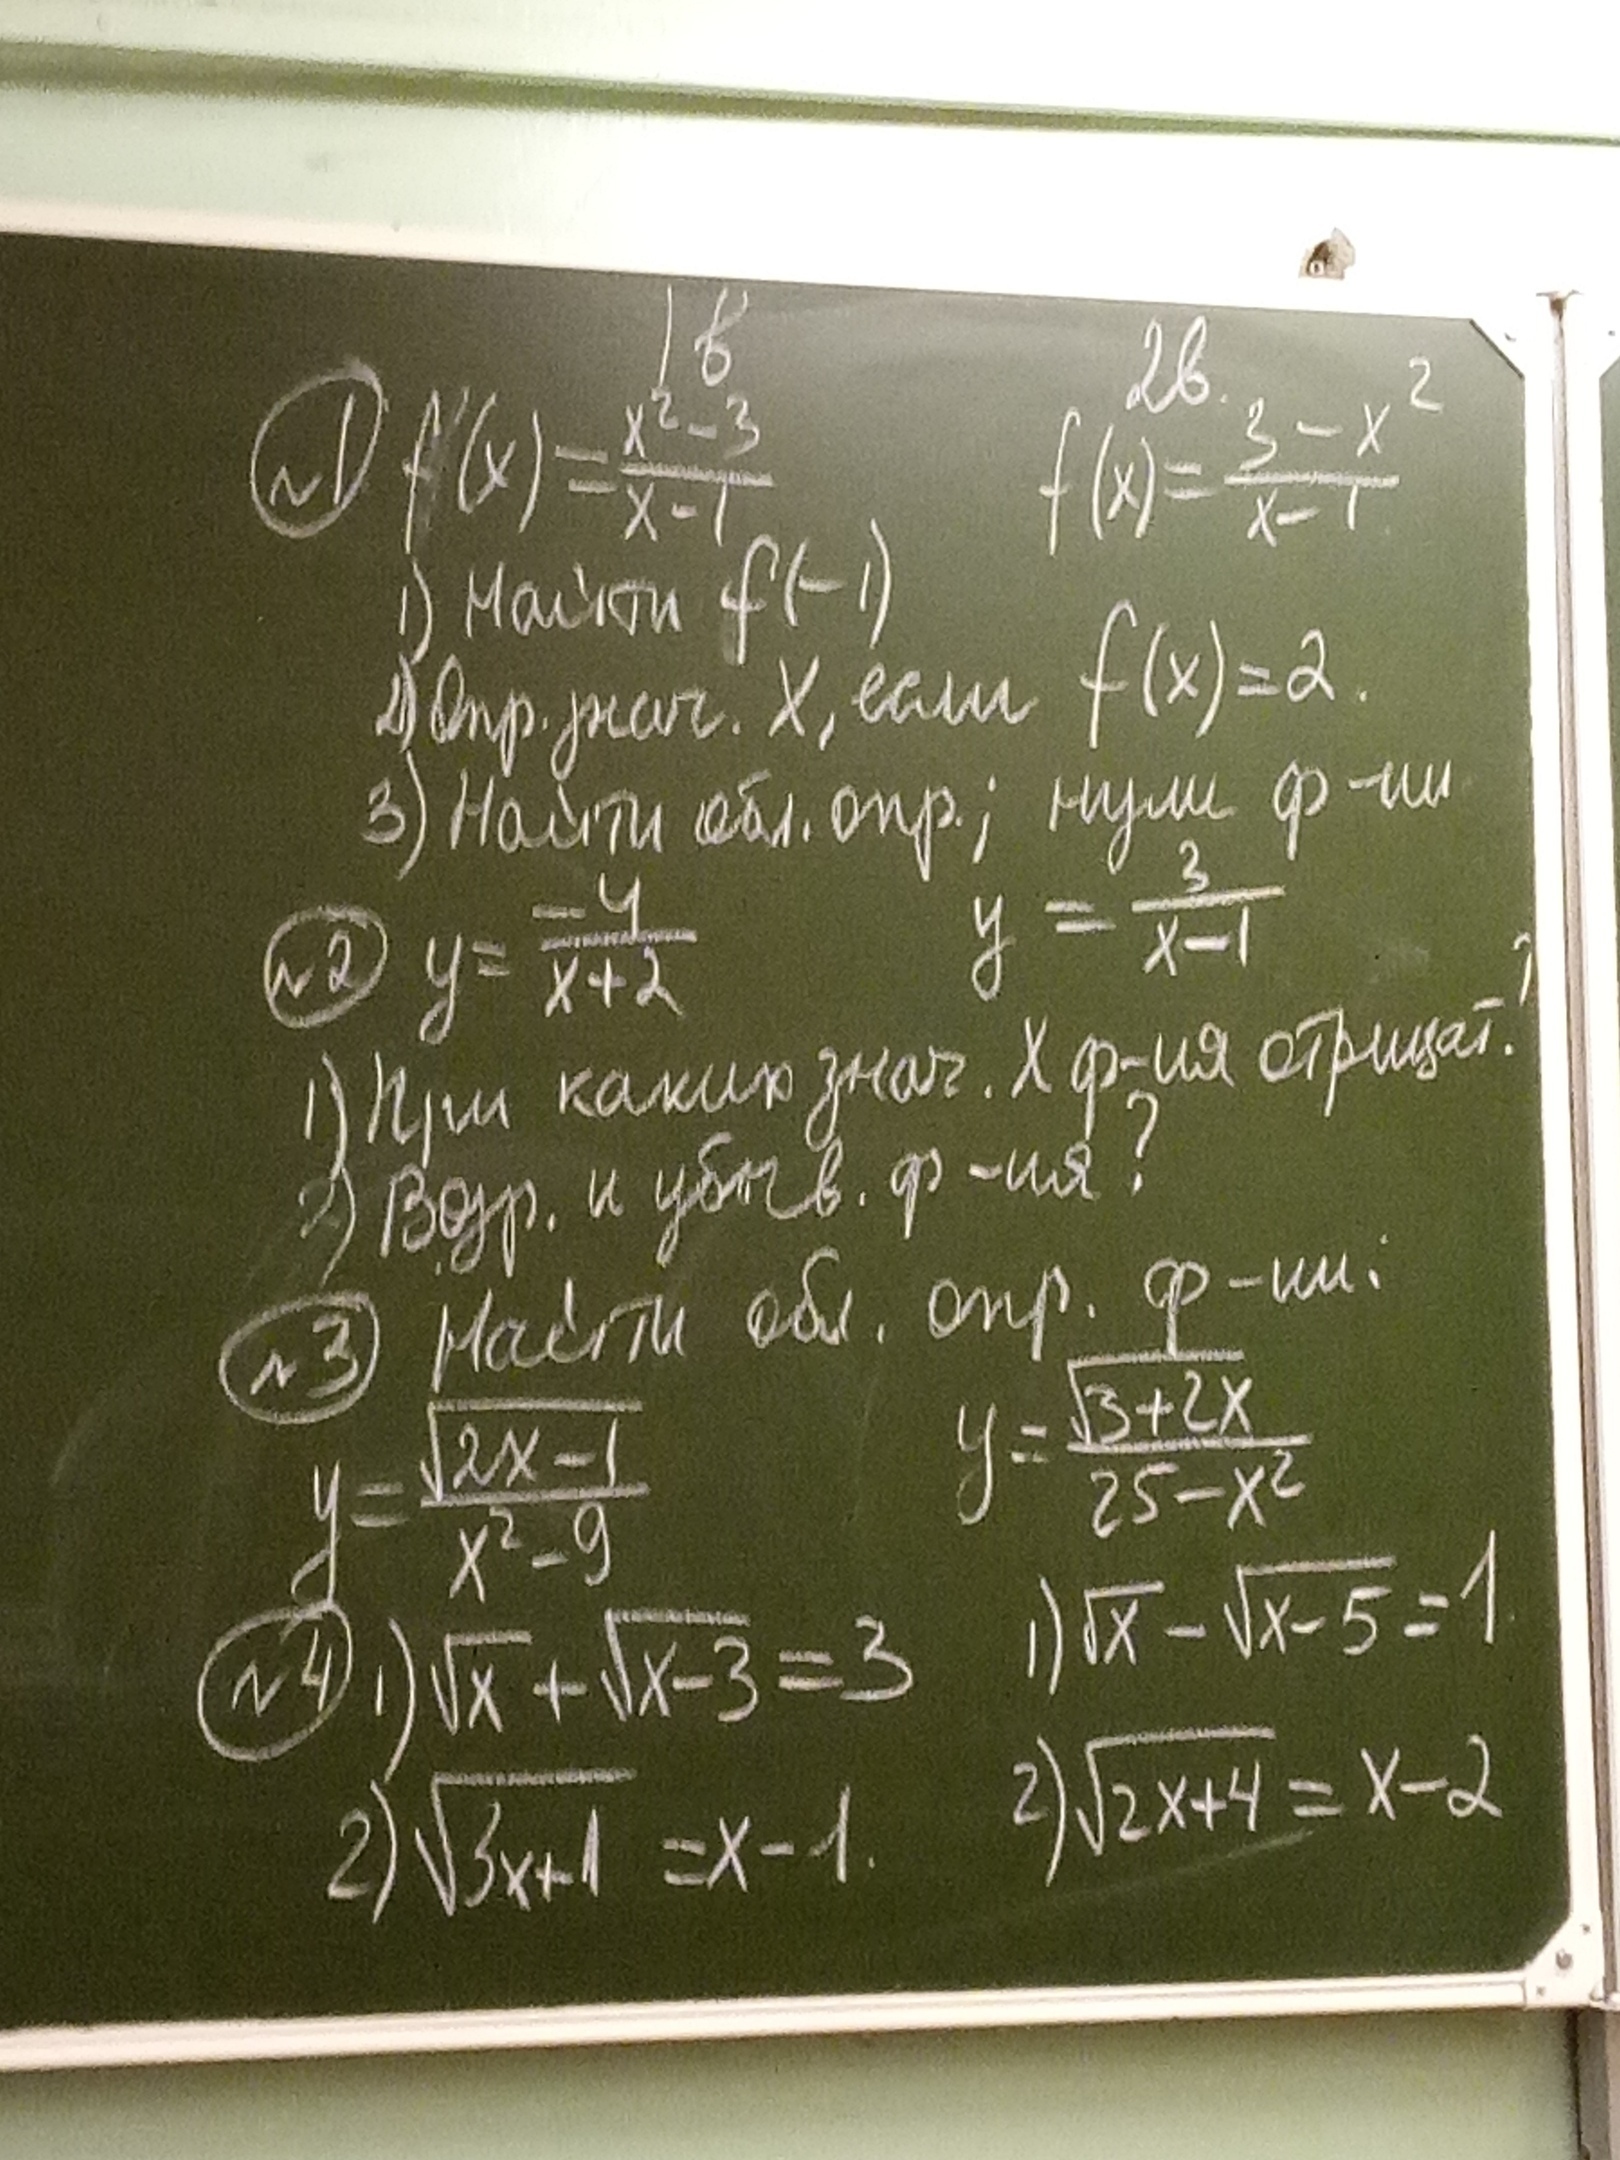 1в 2в.
№1 f(x) = (x² - 3)/(x - 1) f(x) = (3 - x²)/(x - 1)
1) Найти f(-1)
2) Опр. знач. X, если f(x) = 2.
3) Найти обл. опр.; нули ф-ии
№2 y = -4/(x + 2) y = 3/(x - 1)
1) При каких знач. X ф-ия отрицат.?
2) Возр. и убыв. ф-ия?
№3 Найти обл. опр. ф-ии:
y = √(2x - 1)/(x² - 9) y = √(3 + 2x)/(25 - x²)
№4 1) √x + √(x - 3) = 3 1) √x - √(x - 5) = 1.
2) √(3x + 1) = x - 1. 2) √(2x + 4) = x - 2